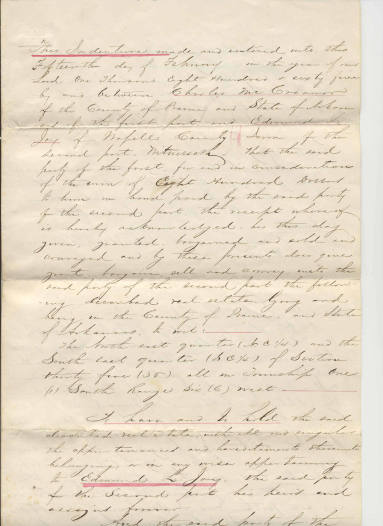 This Indenture made and entered into this
Fifteenth day of February in the year of our
Lord One Thousand Eight Hundred & sixty
by and between Charles
of the County of Prairie and State of
of the first part and Edmund
Joy of Wapello County Iowa of the
second part. Witnesseth that the said
party of the first for and in consideration
of the sum of Eight Hundred Dollars
to him in hand paid by the said party
of the second part the receipt whereof
is hereby acknowledged has this day
given, granted, bargained and sold and
conveyed and by these presents does give
grant, bargain sell and convey unto the
said party of the second part the follow
ing described real estate lying and
being in the County of Prairie and State
of Arkansas, to wit:
The North east quarter (N.E ¼) and the
South east quarter (S.E ¼) of Section
thirty five (35) all in Township One
(1) South Range Six (6) west
To have and to hold the said
described real estate, with all and singular
the appurtenances and hereditaments thereunto
belonging, or in any wise appertaining
to Edmund L. Joy, the said party
of the Second part his heirs and
assigns forever
And the said party of the